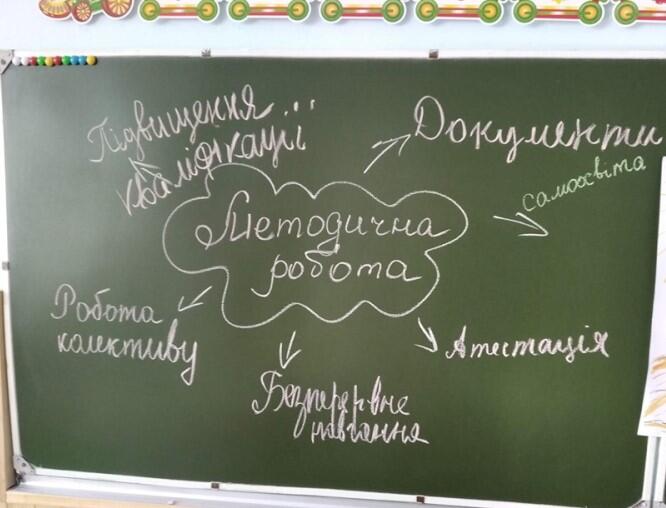 Підвищення...
кваліфікації
Документи
самоосвіта
Методична
робота
Робота
колективу
Атестація
Безперервне
навчання